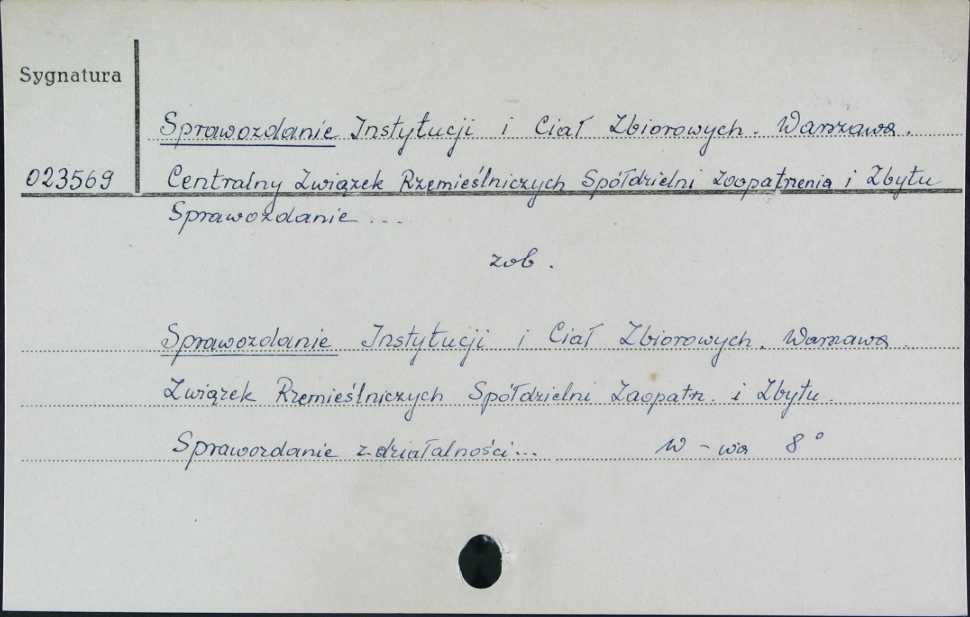 Sygnatura
Sprawozdanie Instytucji i Ciał Zbiorowych. Warszawa.
023569 Centralny Związek Rzemieślniczych Spółdzielni Zaopatrzenia i Zbytu
Sprawozdanie ...
zob.
Sprawozdanie Instytucji i Ciał Zbiorowych. Warszawa.
Związek Rzemieślniczych Spółdzielni Zaopatrz. i Zbytu.
Sprawozdanie z działalności... W-wa 8°